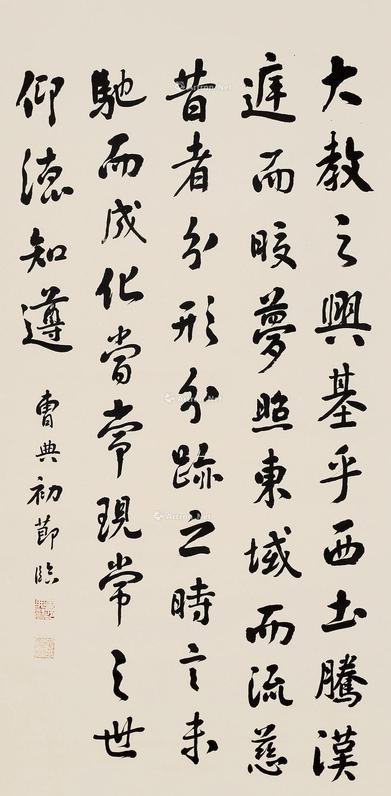 大教之興基乎西土騰漢
遅而晈夢照東域而流慈
昔者分形分跡之時言未
馳而成化當常現常之世
仰德知遵
曹典初節臨